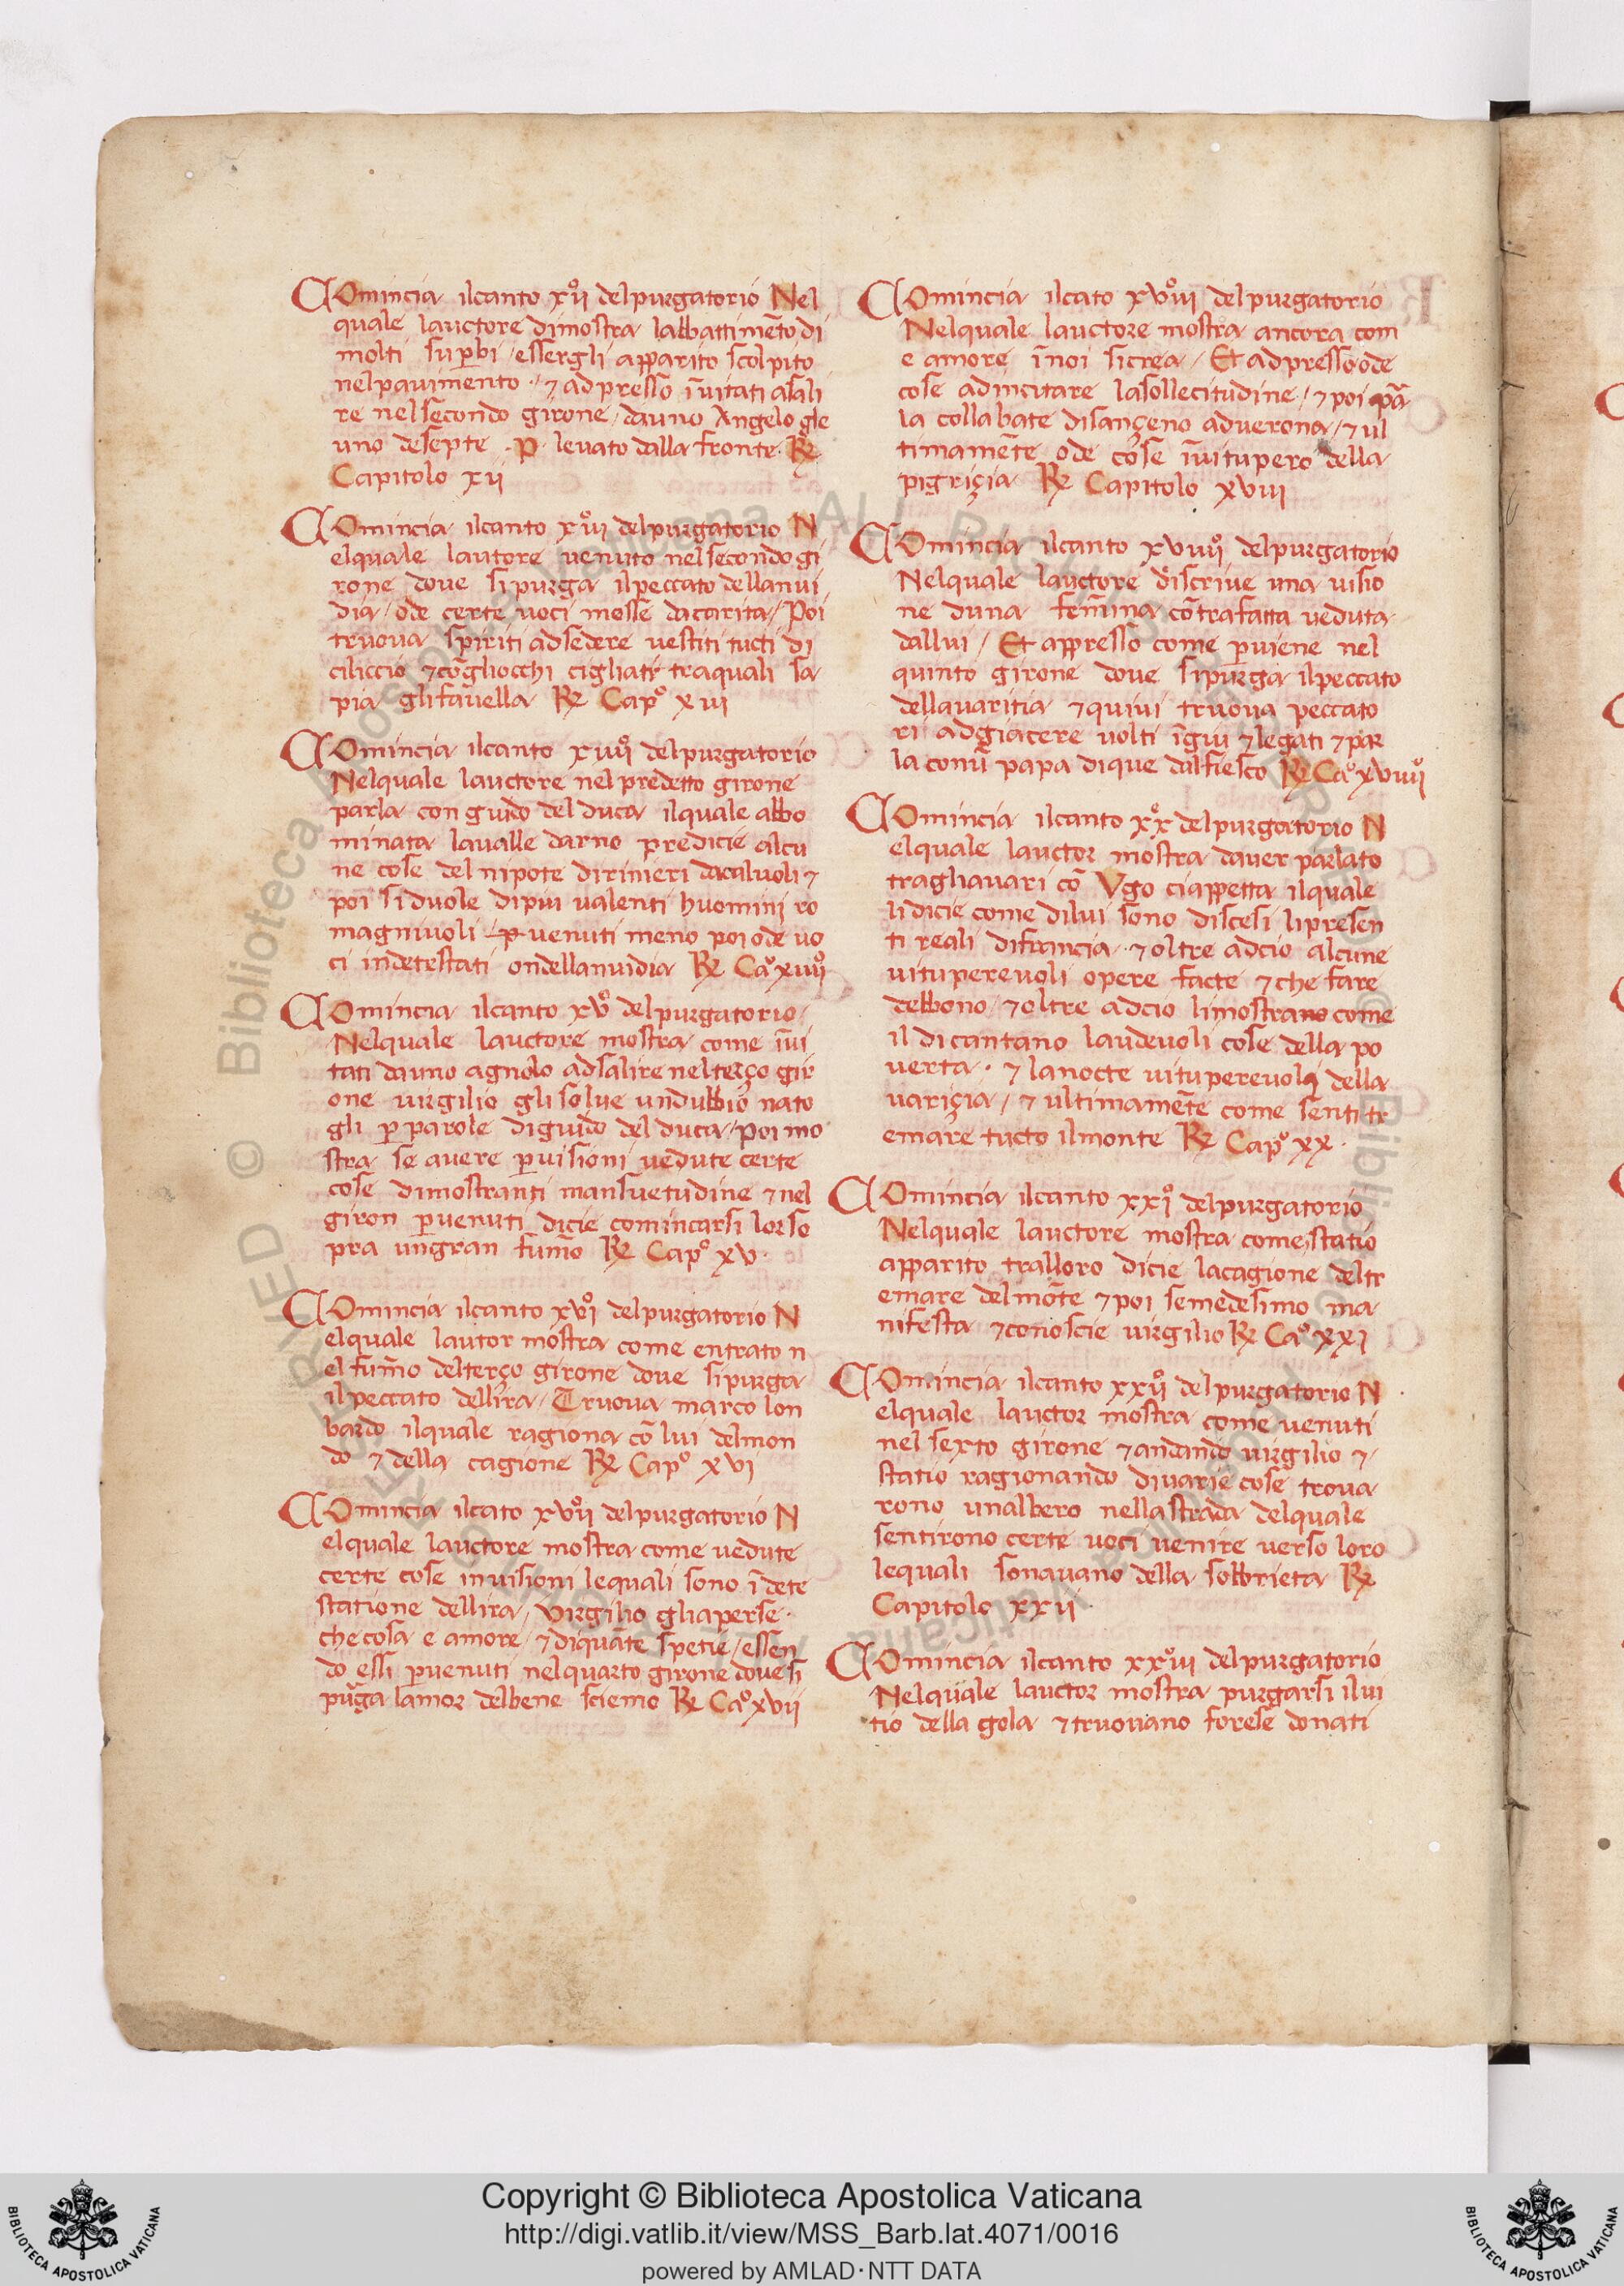 Omincia ilcanto xijº delpurgatorio Nel
quale lauctore dimostra labbattimēto di
molti sup̄bi / essergli apparito scolpito
nelpauimento · / ⁊ adpresso īuitati asali
re nelsecondo girone / dauno Angelo gle
uno desepte · p · leuato dalla fronte · Rx
Capitolo xii
Omincia ilcanto xiijº delpurgatorio N
elquale lautore uenuto nelsecondo gi
rone doue sipurga ilpeccato dellanui
dia / ode certe uoci mosse dacarita / Poi
truoua spiriti adsedere uestiti tucti di
ciliccio ⁊cōgliocchi cigliati traquali sa
pia glifauella Rx Capº xiii
Omincia ilcanto xiiijº delpurgatorio
Nelquale lauctore nel predetto girone
parla con guido del duca ilquale abbo
minata laualle darno predicie alcu
ne cose del nipote dirinieri dacaluoli ⁊
poi si duole dipiu ualenti huomini ro
magniuoli p̄uenuti meno poi ode uo
ci indetestati ondellanuidia Rx Caº xiiijº
Omincia ilcanto xvº delpurgatorio /
Nelquale lauctore mostra come īui
tati dauno agnolo adsalire nelterço gir
one uirgilio gli solue undubbio nato
gli p̄ parole diguido del duca / poi mo
stra se auere p̄uisioni uedute certe
cose dimostranti mansuetudine ⁊ nel
giron p̄uenuti dicie comincarsi lor so
pra ungran fum̄o Rx Capº xv ·
Omincia ilcanto xviº delpurgatorio N
elquale lautor mostra come entrato n
el fum̄o delterço girone doue sipurga
ilpeccato dellira / Truoua marco lon
bardo ilquale ragiona cō lui delmon
do ⁊ della cagione Rx Capº xvi
Omincia ilcato xvijº delpurgatorio N
elquale lauctore mostra come uedute
certe cose inuisioni lequali sono ī dete
statione dellira / Virgilio gliaperse ·
checosa e amore / ⁊ diquāte spetie / essen
do essi p̄uenuti nelquarto girone douesi
purga lamor delbene sciemo Rx Caº xvii
Omincia ilcato xviijº delpurgatorio
Nelquale lauctore mostra ancora com
e amore ī noi sicrea / Et adpresso ode
cose adincitare lasollecitudine / ⁊ poi par
la collabate disançeno aduerona / ⁊ ul
timamēte ode cose īuitupero della
pigriçia Rx Capitolo xviii
Omincia ilcanto xviiijº delpurgatorio
Nelquale lauctore discriue una uisio
ne duna fem̄ina cōtrafatta ueduta
dallui / Et appresso come p̄uiene nel
quinto girone doue sipurga ilpeccato
dellauaritia ⁊quiui truoua peccato
ri adgiacere uolti ī giu ⁊legati ⁊par
la conū papa dique dalfiesco Rx Caº xviiijº
Omincia ilcanto xxº delpurgatorio N
elquale lauctor mostra dauer parlato
tragliauari cō Vgo ciappetta ilquale
li dicie come dilui sono discesi lipresen
ti reali difrancia · ⁊ oltre adcio alcune
uitupereuoli opere facte ⁊ che fare
debbono / ⁊ oltre adcio limostrano come
il di cantano laudeuoli cose della po
uerta · ⁊ lanocte uitupereuoli della
uariçia / ⁊ ultimamēte come senti tr
emare tucto ilmonte Rx Capº xx ·
Omincia ilcanto xxiº delpurgatorio
Nelquale lauctore mostra come statio
apparito tralloro dicie lacagione deltr
emare delmōte ⁊ poi semedesimo ma
nifesta ⁊conoscie uirgilio Rx Caº xxi
Omincia ilcanto xxijº delpurgatorio N
elquale lauctor mostra come uenuti
nel sexto girone ⁊ andando uirgilio ⁊
statio ragionando diuarie cose troua
rono unalbero nellastrada delquale
sentirono certe uoci uenire uerso loro
lequali sonauano della sobbrieta Rx
Capitolo xxii ·
Omincia ilcanto xxiijº delpurgatorio
Nelquale lauctor mostra purgarsi ilui
tio della gola ⁊truouano forese donati
Copyright © Biblioteca Apostolica Vaticana
http://digi.vatlib.it/view/MSS_Barb.lat.4071/0016
powered by AMLAD·NTT DATA
BIBLIOTECA APOSTOLICA VATICANA
BIBLIOTECA APOSTOLICA VATICANA